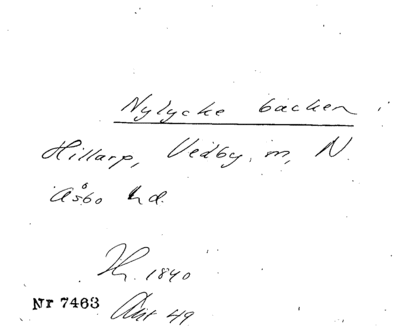 Nylycke backen
Hillarp, Vedby, m, N.
Åsbo hd.
1840
Nr 7463 Akt 49